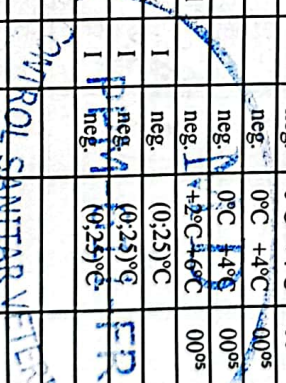 neg. 0°C +4°C 00⁰⁵
neg. 0°C +4°C 00⁰⁵
neg. +2°C +6°C 00⁰⁵
I neg. (0;25)°C
I neg. (0;25)°C
I neg. (0;25)°C
CONTROL SANITAR VETERI